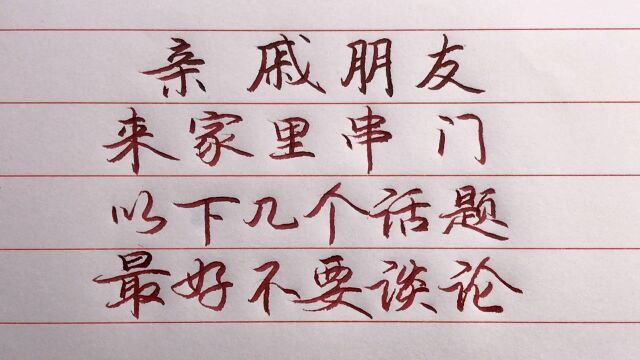 亲戚朋友
来家里串门
以下几个话题
最好不要谈论